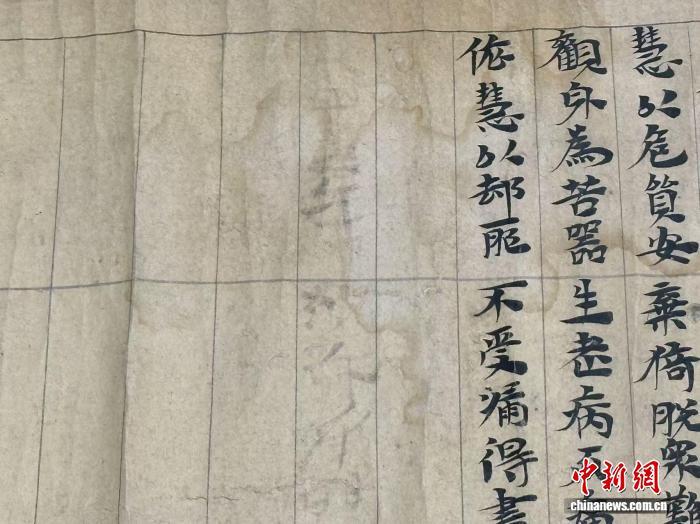 慧以危質安棄猗脱衆難
觀身為苦器生老病
依慧以却不受痛得
中新网
chinanews.com.cn